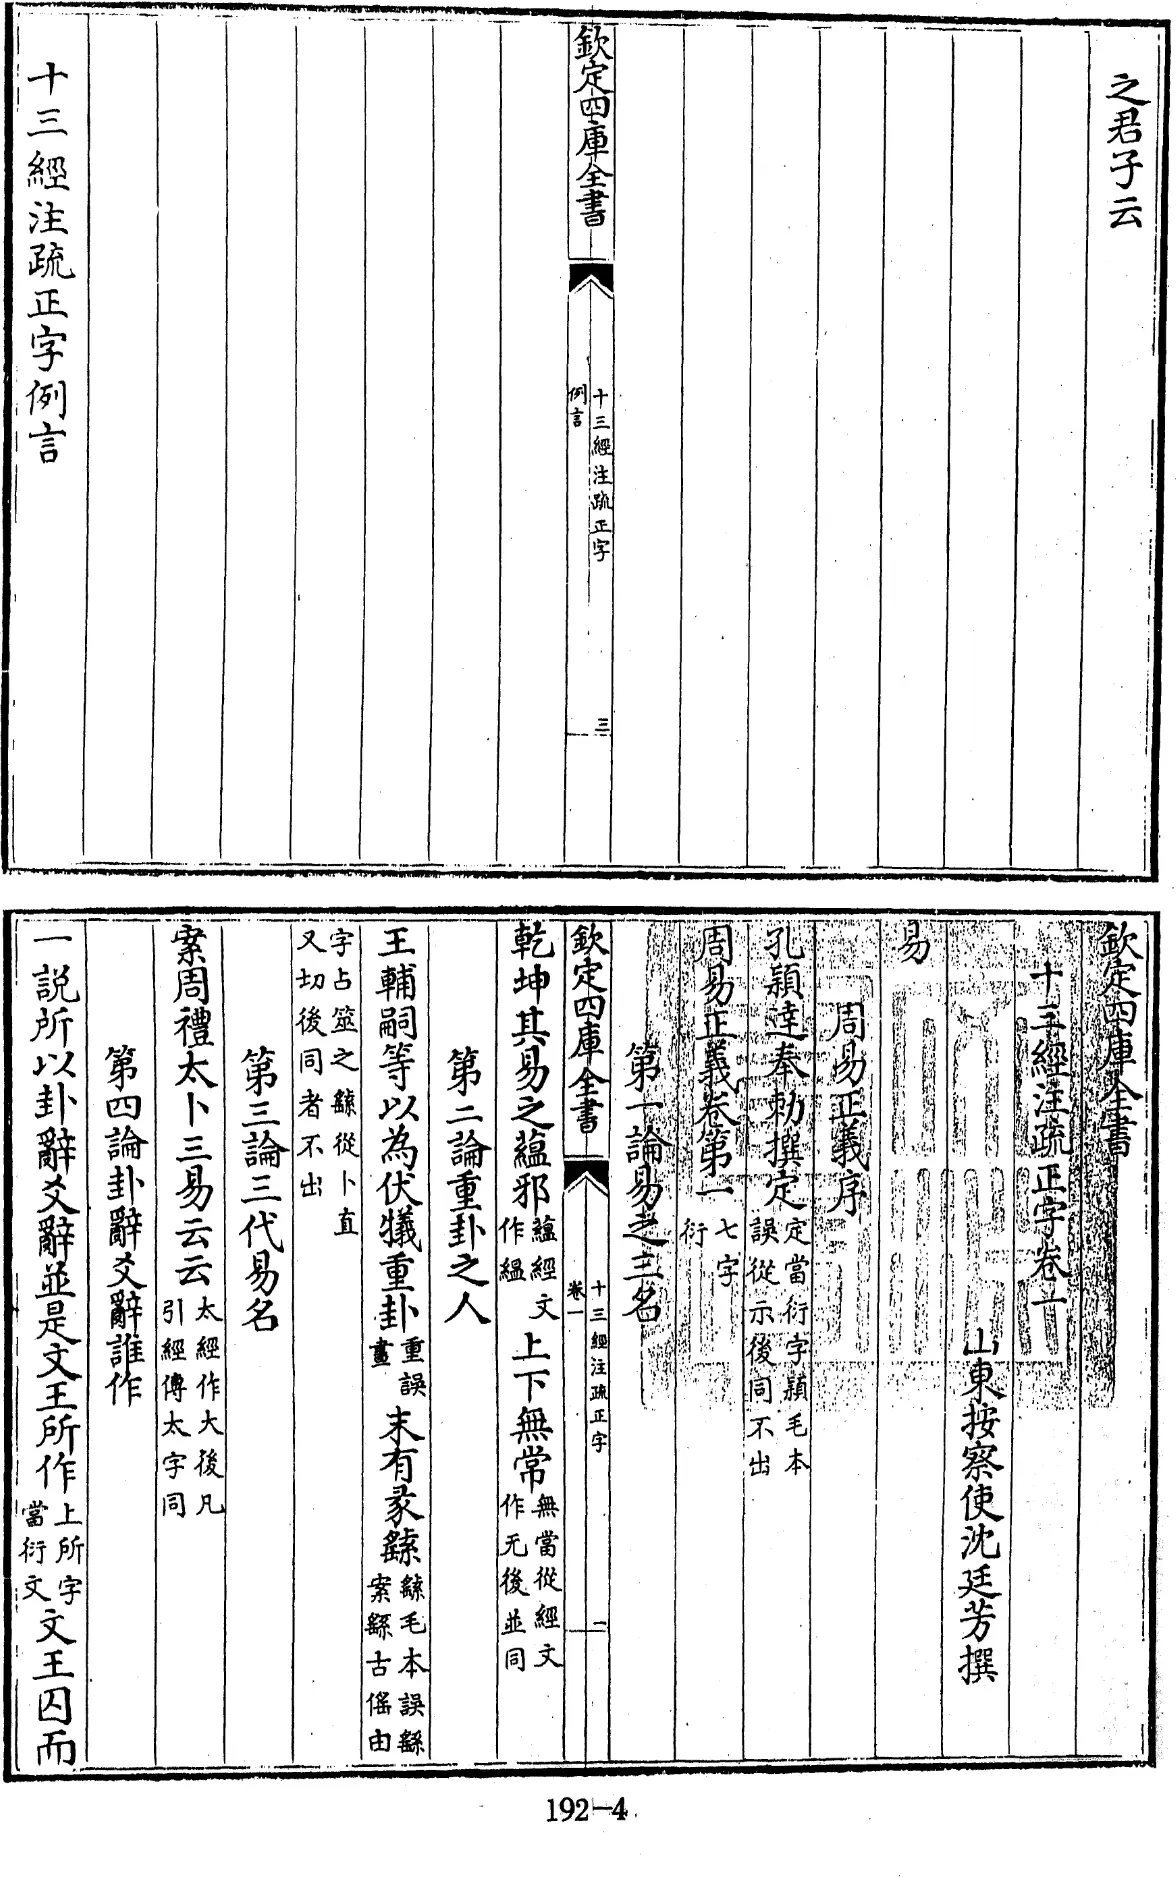 之君子云
欽定四庫全書
十三經注疏正字
例言
三
十三經注疏正字例言
欽定四庫全書
十三經注疏正字卷一
山東按察使沈廷芳撰
易
周易正義序
孔穎達奉勅撰定定當衍字穎毛本誤從示後同不出
周易正義卷第一七字衍
第一論易之三名
欽定四庫全書
十三經注疏正字
卷一
一
乾坤其易之蘊邪蘊經文作緼上下無常無當從經文作无後並同
第二論重卦之人
王輔嗣等以為伏犧重卦重誤畫末有彖繇繇毛本誤繇案繇古傜由
字占筮之繇從卜直又切後同者不出
第三論三代易名
案周禮太卜三易云云太經作大後凡引經傳太字同
第四論卦辭爻辭誰作
一說所以卦辭爻辭並是文王所作上所字當衍文文王囚而
192-4